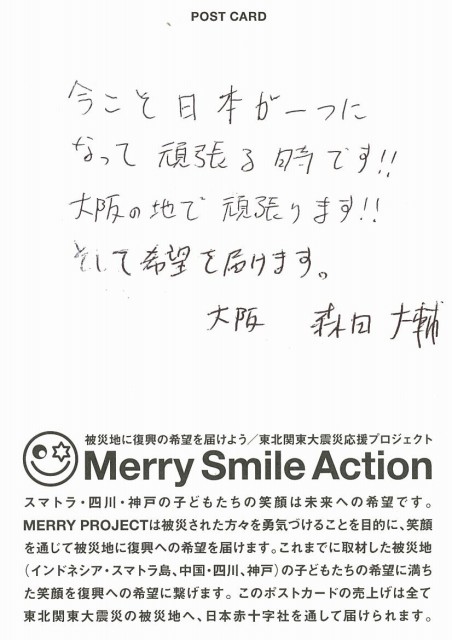 POST CARD
今こそ日本が一つに
なって頑張る時です!!
大阪の地で頑張ります!!
そして希望を届けます。
大阪 森田 大輔
被災地に復興の希望を届けよう/東北関東大震災応援プロジェクト
Merry Smile Action
スマトラ・四川・神戸の子どもたちの笑顔は未来への希望です。
MERRY PROJECTは被災された方々を勇気づけることを目的に、笑顔
を通じて被災地に復興への希望を届けます。これまでに取材した被災地
(インドネシア・スマトラ島、中国・四川、神戸)の子どもたちの希望に満ち
た笑顔を復興への希望に繋げます。このポストカードの売上げは全て
東北関東大震災の被災地へ、日本赤十字社を通して届けられます。